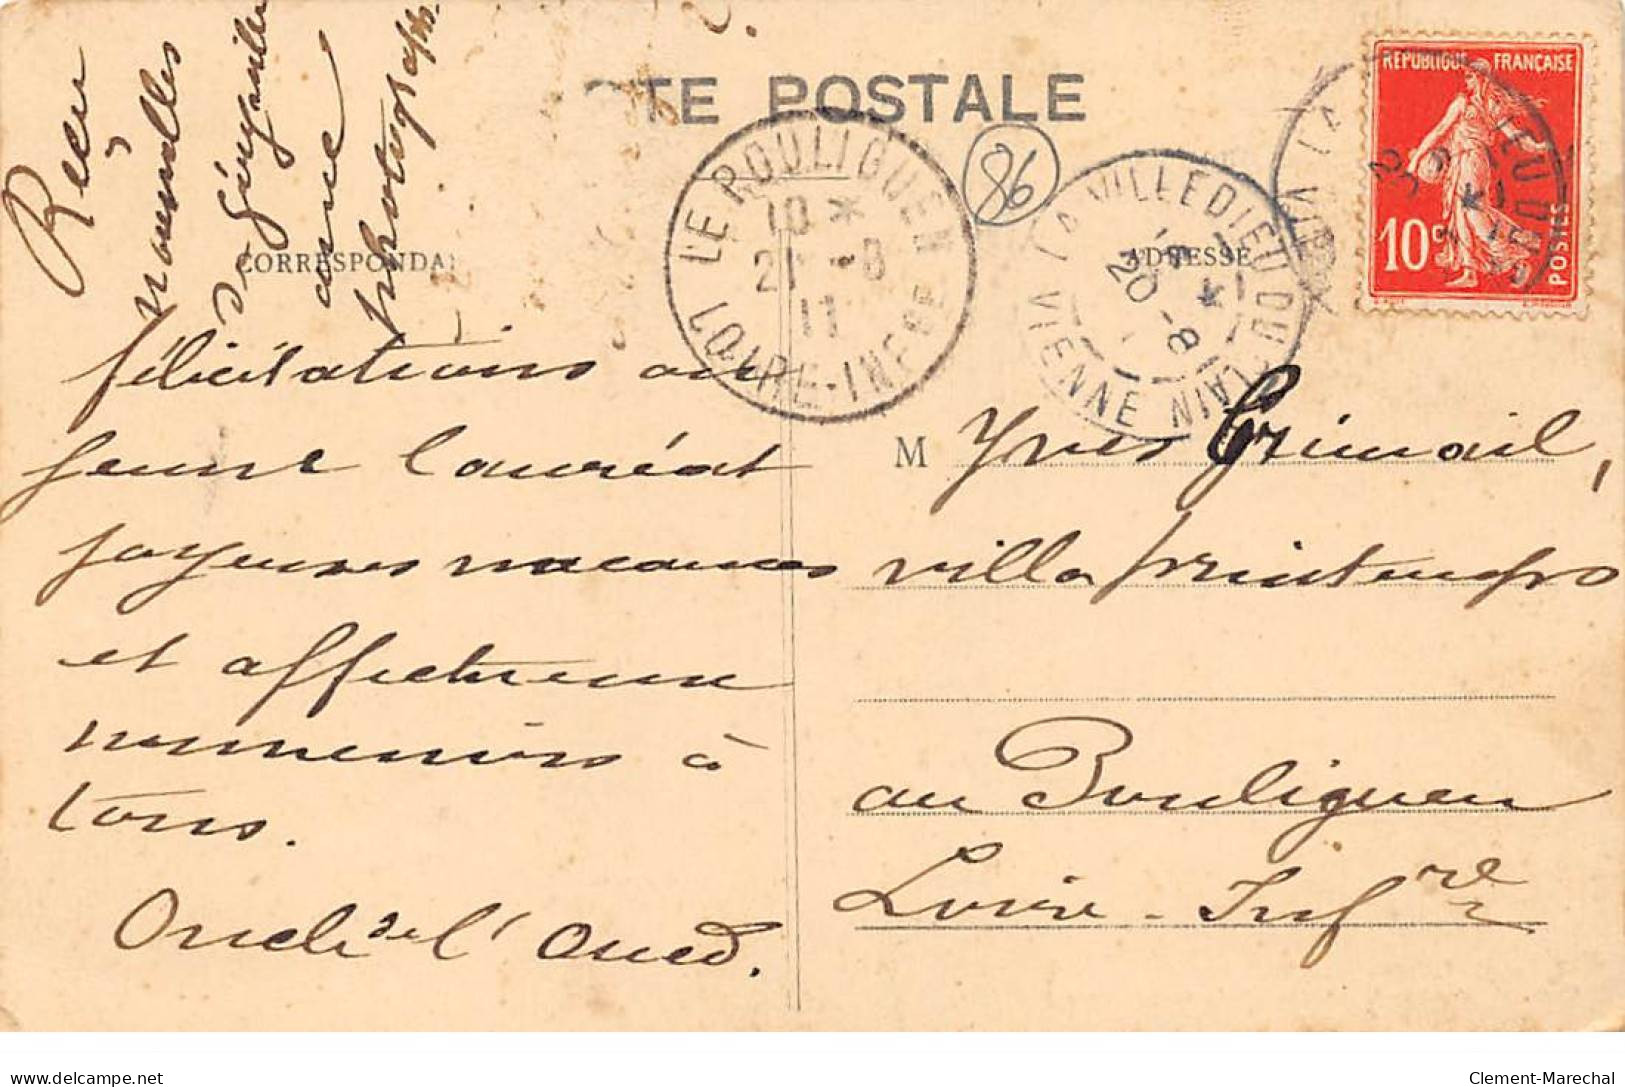 Reçu
nouvelles
de
avec
photographs.
TE POSTALE
CORRESPONDA
ADRESSE
félicitations au
jeune lauréat
joyeuses vacances
et affectueux
souvenirs à
tous.
l'Oued.
M Yves Grimail,
villa printemps
au Pouliguen
Loire-Infre
LE POULIGUEN
10 *
21 -8
11
LOIRE-INFRE
86
LA VILLEDIEU DU CLAIN
20 -8
VIENNE
REPUBLIQUE FRANÇAISE
10c
POSTES
www.delcampe.net
Clement-Marechal